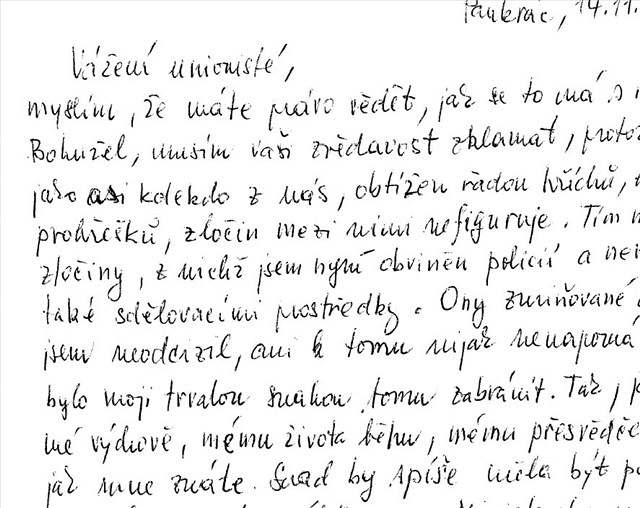 Pankrác, 14.11.
Vážení unionisté,
myslím, že máte právo vědět, jak se to má s
Bohužel, musím vaši zvědavost zklamat, proto
jako asi kdekdo z nás, obtížen řadou hříchů,
prohřešků, zločin mezi nimi nefiguruje. Tím
zločiny, z nichž jsem nyní obviněn policií a
také sdělovacími prostředky. Ony zmiňované
jsem neodcizil, ani k tomu nijak nenapomá
bylo mojí trvalou snahou tomu zabránit. Tak,
mé výchově, mému života běhu, mému přesvědče
jak mne znáte. Snad by spíše měla být